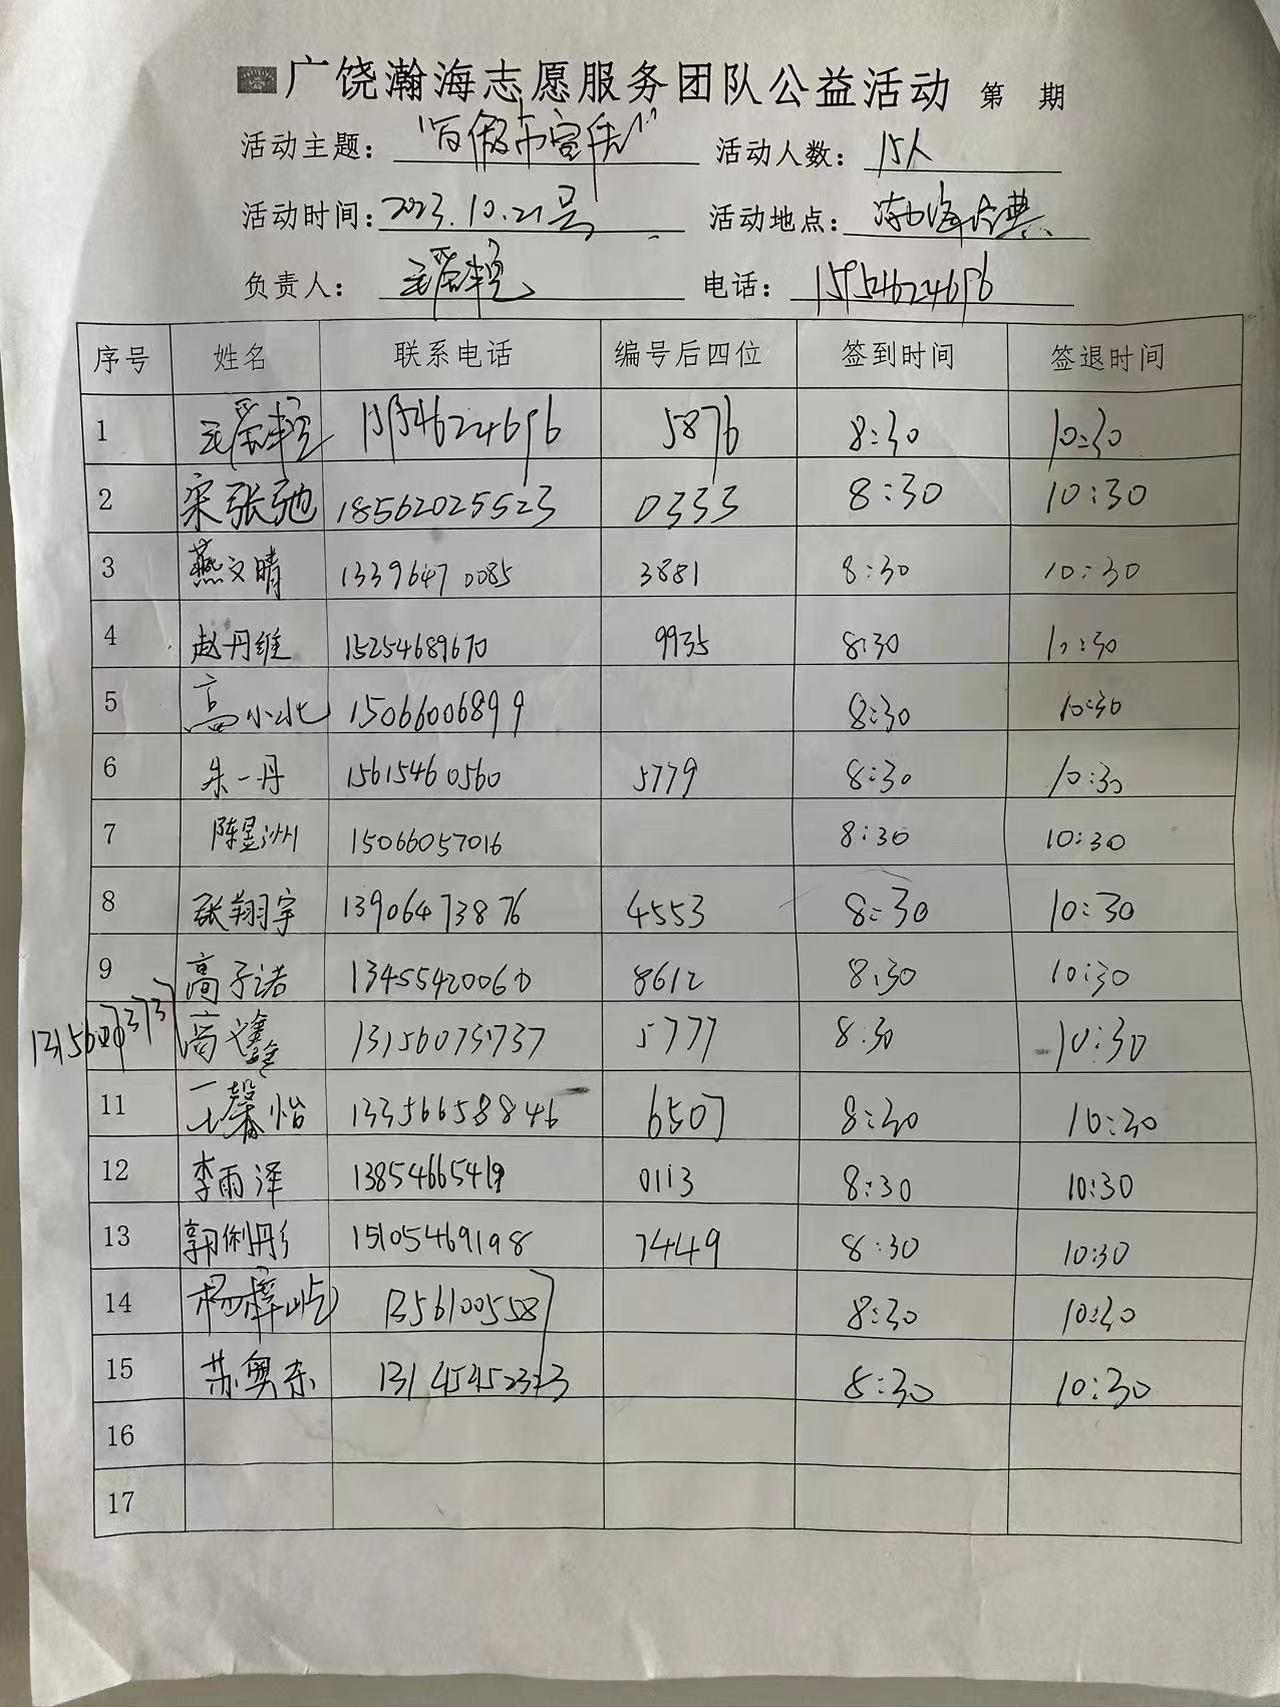 广饶瀚海志愿服务团队公益活动 第 期
活动主题： 活动人数：15人
活动时间：2023.10.21号 活动地点：渤海大典
负责人： 电话：15954624696
序号 姓名 联系电话 编号后四位 签到时间 签退时间
1 15954624696 5876 8:30 10:30
2 宋张弛 18562025523 0333 8:30 10:30
3 燕文晴 13396470085 3881 8:30 10:30
4 赵丹维 15254689670 9935 8:30 10:30
5 高小北 15066006899 8:30 10:30
6 朱一丹 15615460560 5779 8:30 10:30
7 陈昱洲 15066057016 8:30 10:30
8 张翔宇 13906473876 4553 8:30 10:30
9 高子诺 13455420060 8612 8:30 10:30
高文鑫 13156075737 5777 8:30 10:30
11 王馨怡 13356658846 6507 8:30 10:30
12 李雨泽 13854665419 0113 8:30 10:30
13 郭俐彤 15105469198 7449 8:30 10:30
14 杨梓屿 8:30 10:30
15 苏奥东 8:30 10:30
16
17